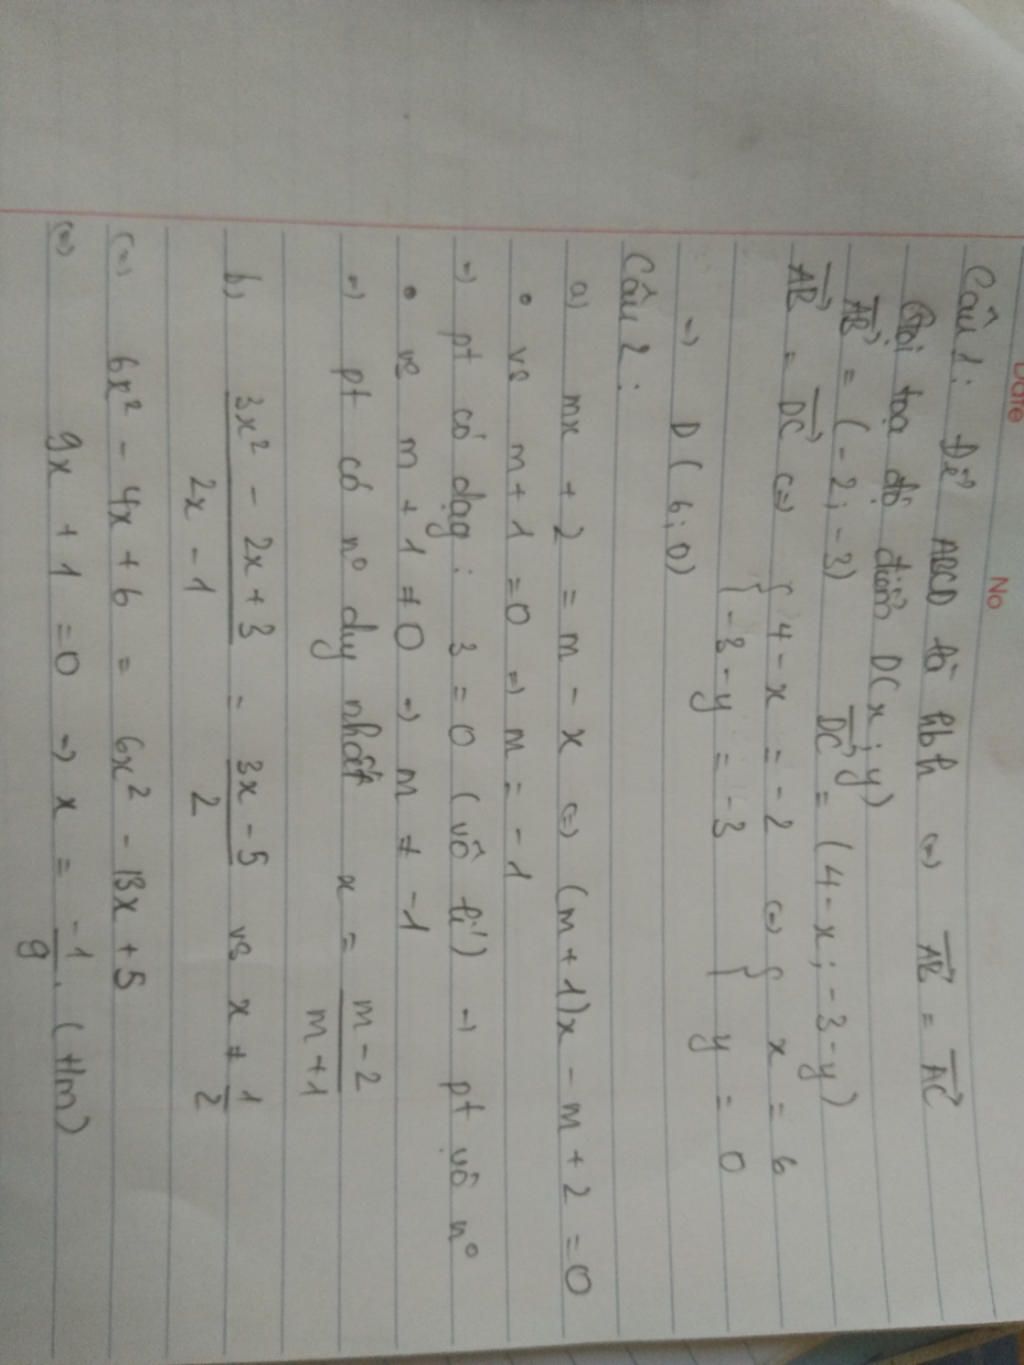 Date No
Câu 1: Để ABCD là hbh (=) AB = AC
Gọi tọa độ điểm D(x; y)
AB = (-2; -3) DC = (4-x; -3-y)
AB = DC (=) { 4 - x = -2 (=) { x = 6
{ -3 - y = -3 { y = 0
=) D(6; 0)
Câu 2:
a) mx + 2 = m - x (=) (m+1)x - m + 2 = 0
• vs m + 1 = 0 =) m = -1
=) pt có dạg: 3 = 0 (vô lí) =) pt vô n°
• vs m + 1 ≠ 0 =) m ≠ -1
=) pt có n° dy nhất x = \frac{m-2}{m+1}
b) \frac{3x² - 2x + 3}{2x - 1} = \frac{3x - 5}{2} vs x ≠ \frac{1}{2}
(=) 6x² - 4x + 6 = 6x² - 13x + 5
(=) 9x + 1 = 0 =) x = \frac{-1}{9}. (t/m)